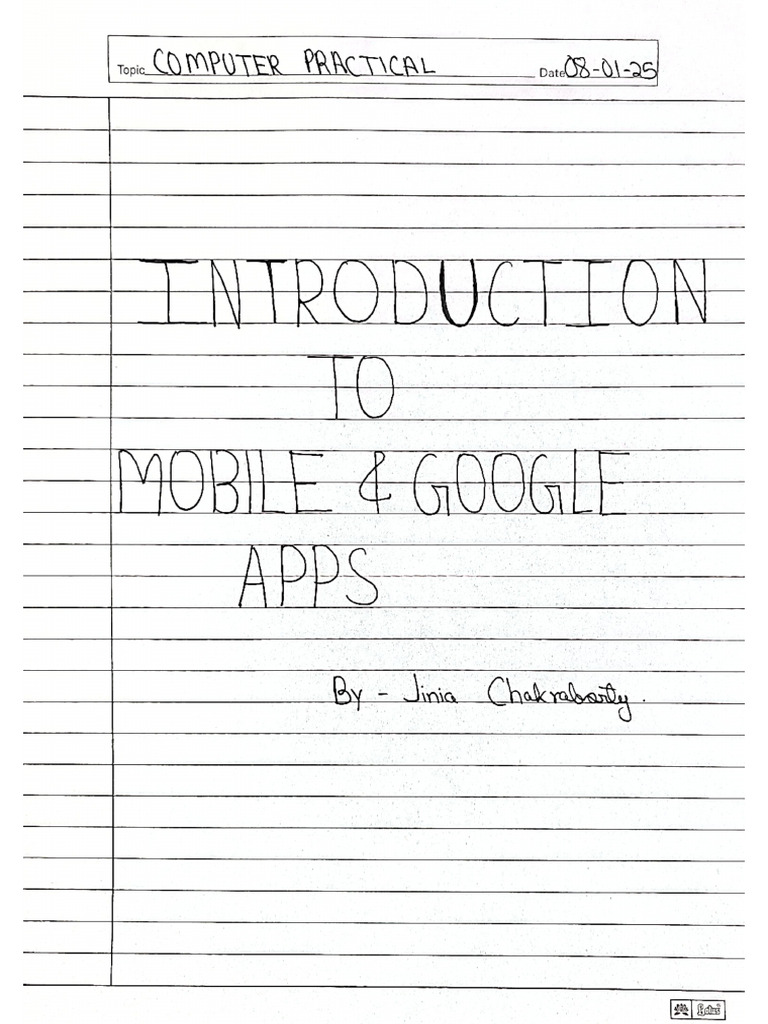 Topic COMPUTER PRACTICAL Date 08-01-25
INTRODUCTION
TO
MOBILE & GOOGLE
APPS
By - Jinia Chakraborty.
Lotus